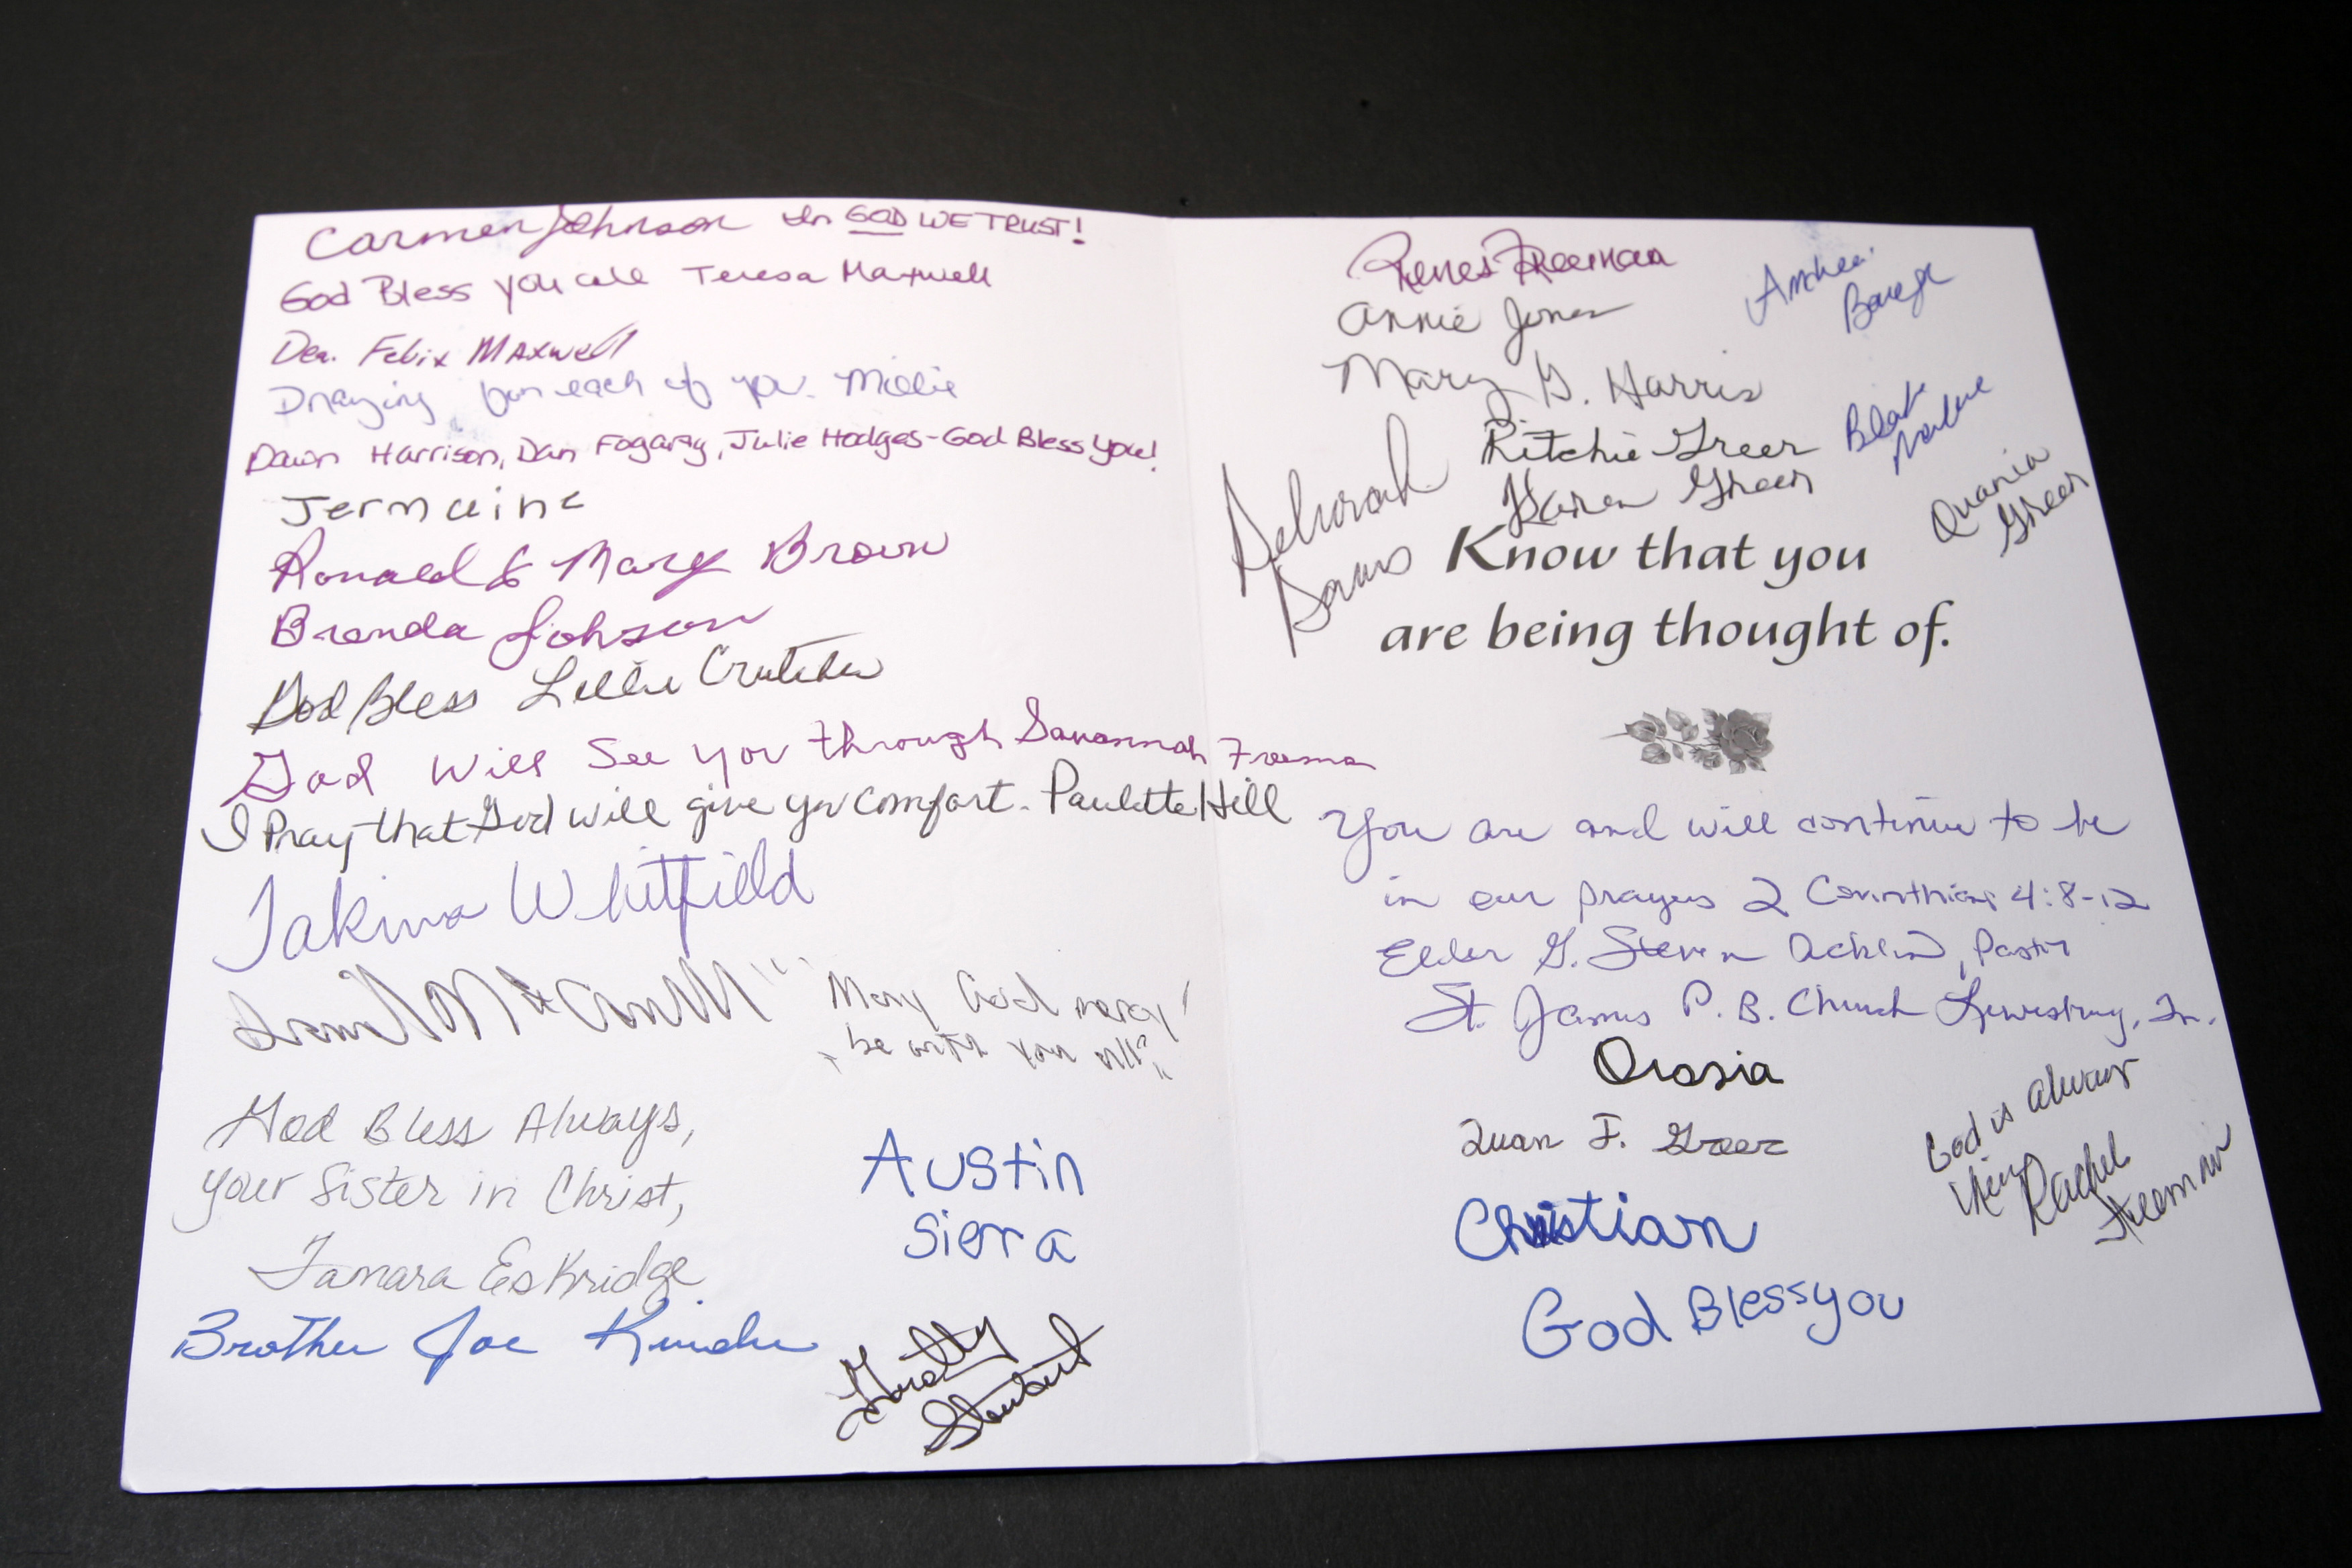 Carmen Johnson In GOD WE TRUST!
God Bless you all Teresa Maxwell
Dea. Felix Maxwell
Praying for each of you. Millie
Dawn Harrison, Dan Fogarty, Julie Hodges-God Bless You!
Jermaine
Ronald & Mary Brown
Brenda Johnson
God Bless Lillie Crutcher
God Will See You through Savannah Freeman
I Pray that God will give you comfort. Paulette Hill
Takima Whitfield
"May God mercy
be with you all"
God Bless Always,
your Sister in Christ,
Tamara Eskridge
Austin
Sierra
Brother Joe
Freeman
Annie Jones
Mary G. Harris
Ritchie Greer
Karen Greer
Deborah
Davis
Quania
Greer
Know that you
are being thought of.
You are and will continue to be
in our prayers 2 Corinthians 4:8-12
Elder G. Steven Acklin, Pastor
St. James P. B. Church Lewisburg, Tn.
Orosia
Quan F. Greer
God is always
Rachel
Freeman
Christian
God Bless you